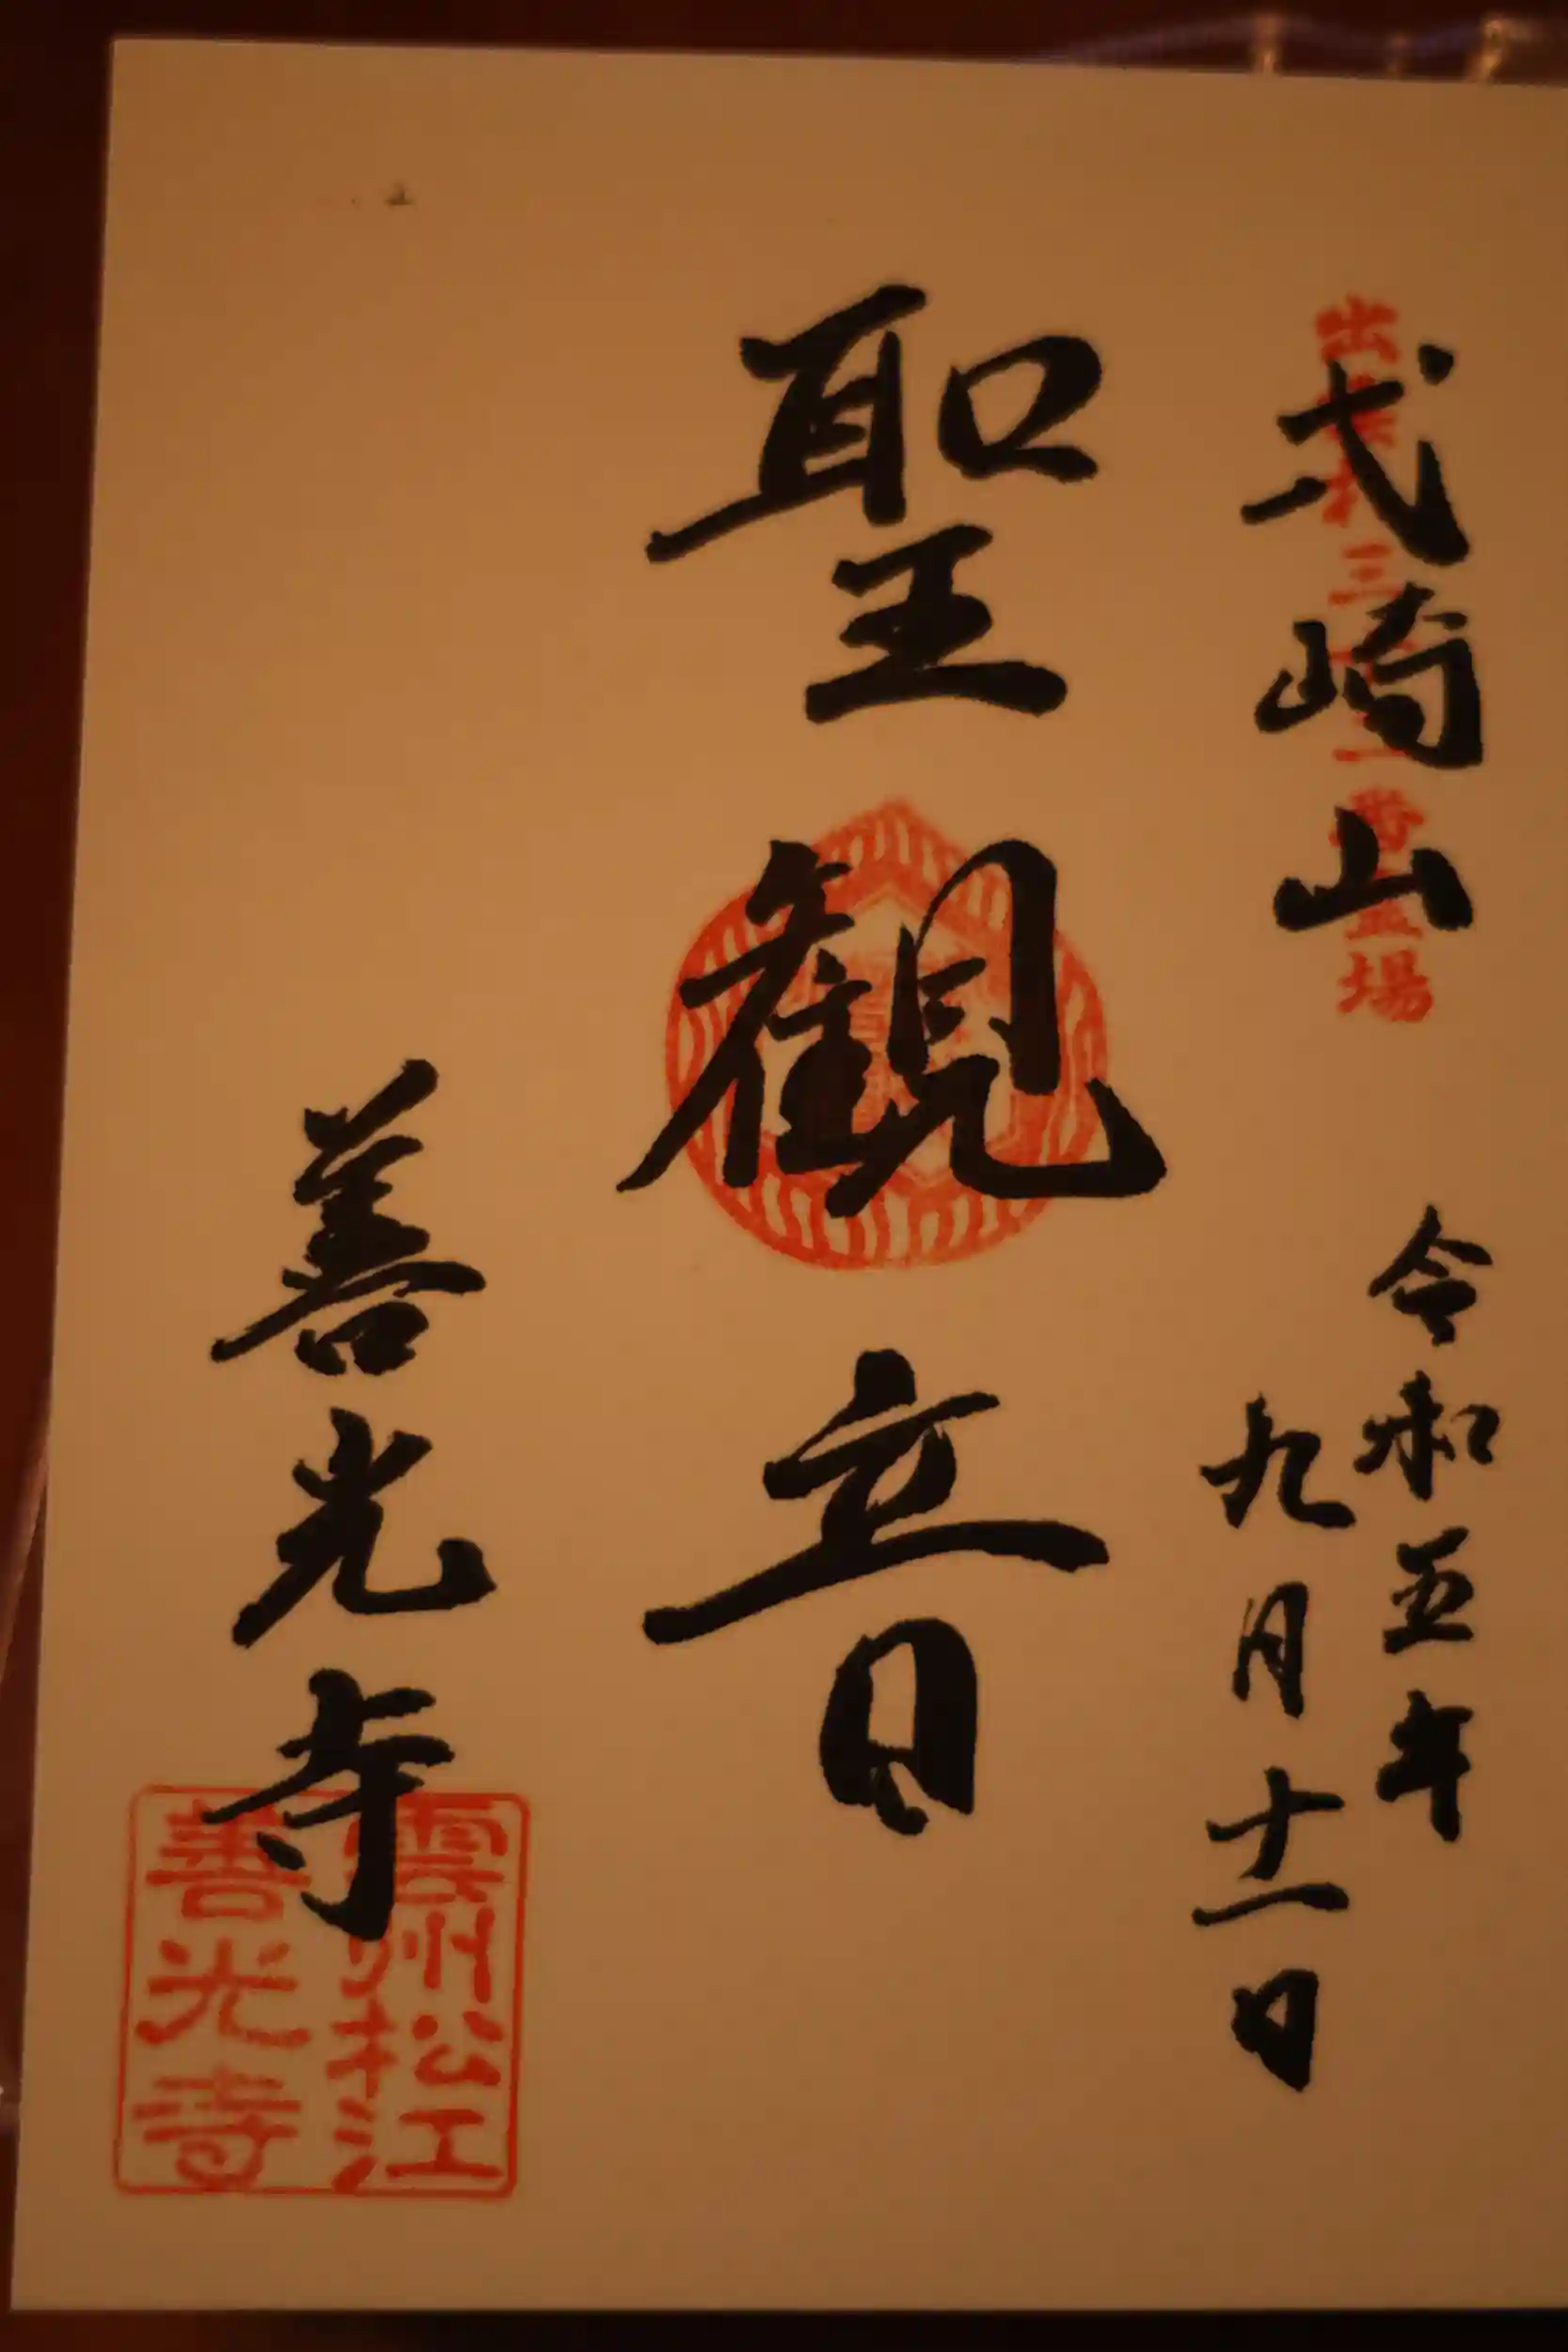 弌崎山
出雲札三十三番霊場
令和五年
九月十一日
聖観音
善光寺
雲州松江
善光寺